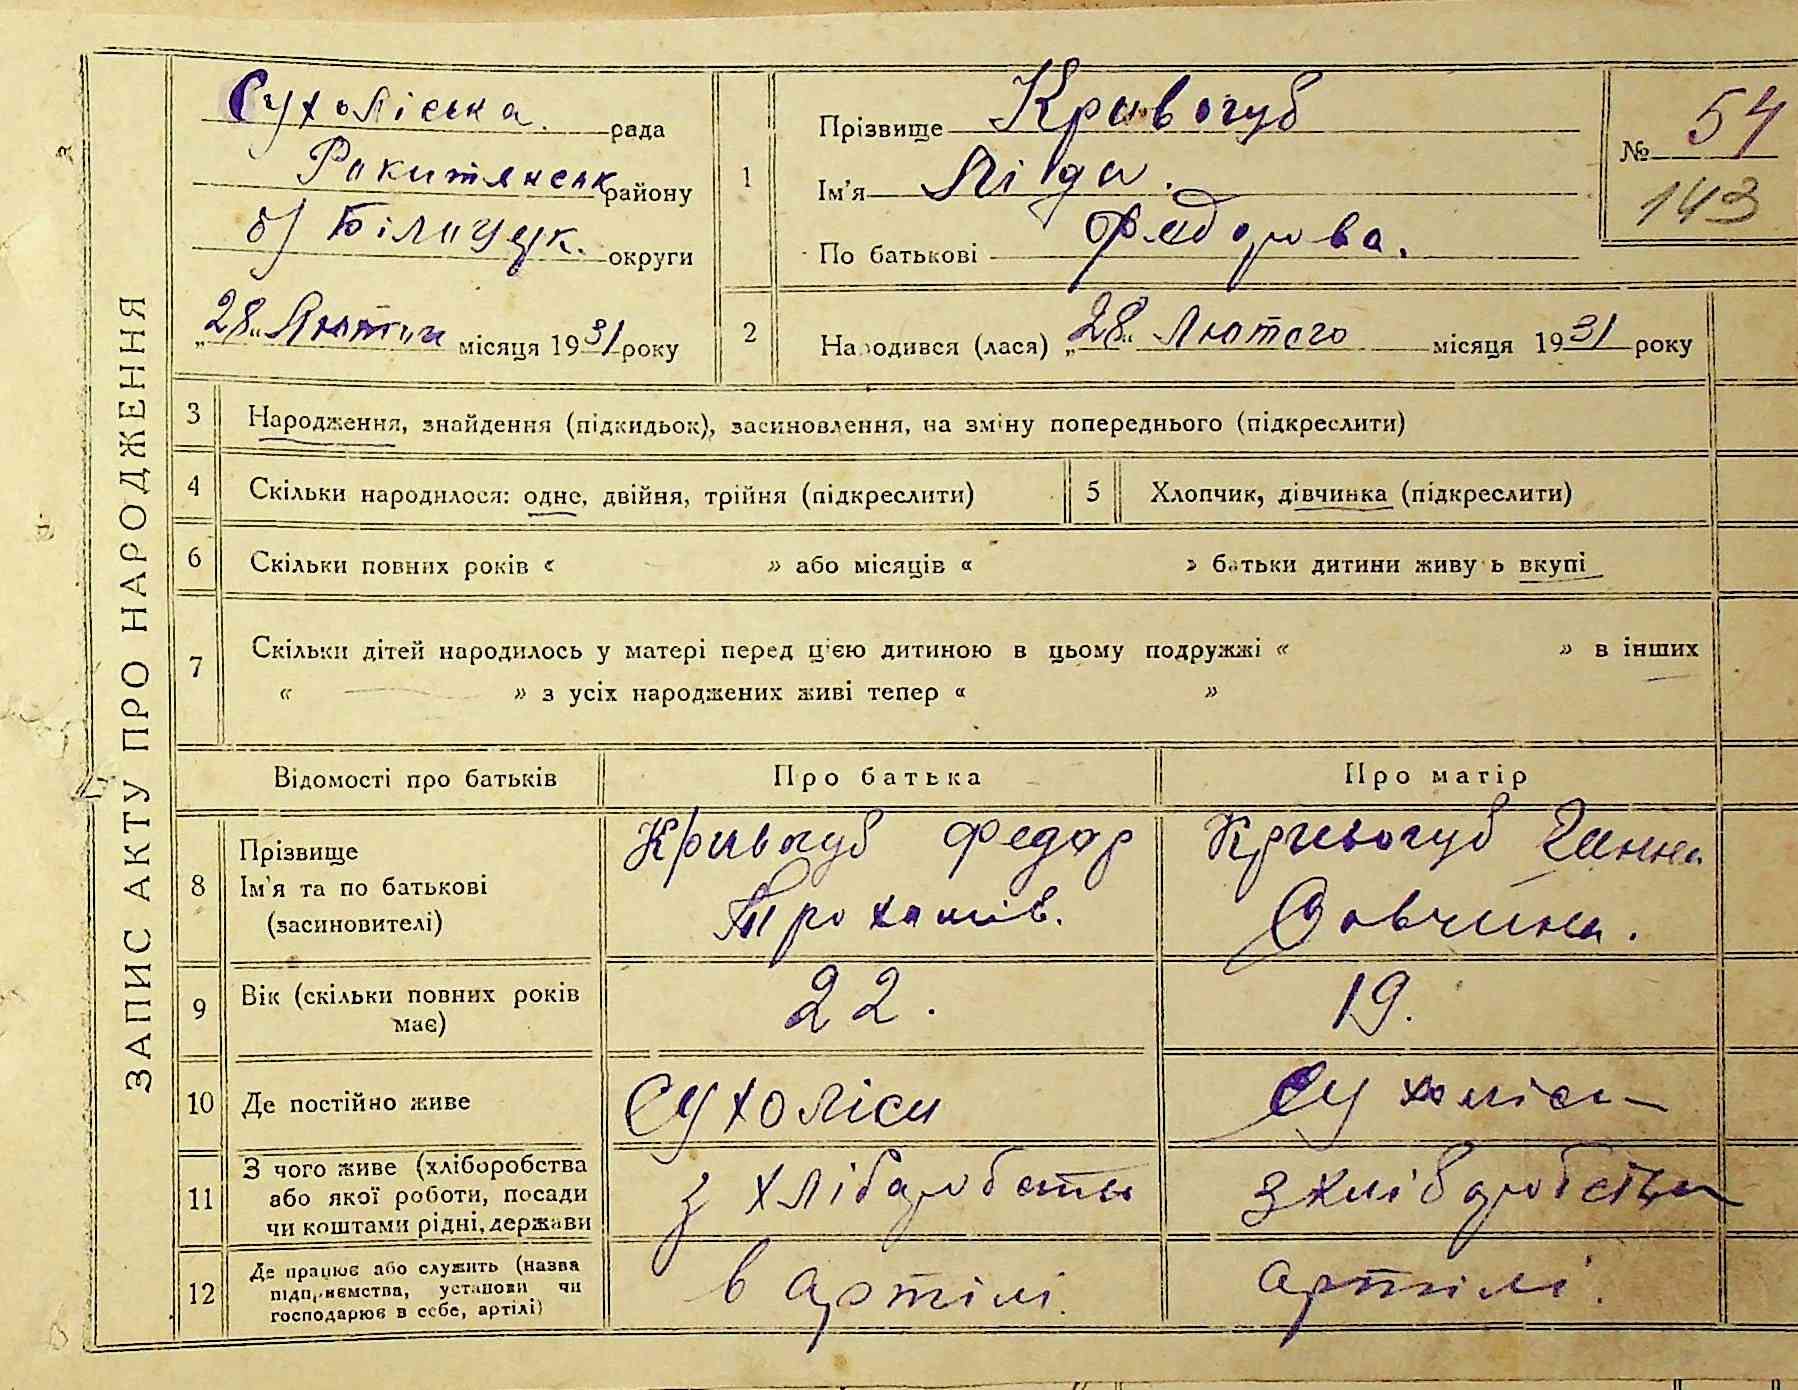 ЗАПИС АКТУ ПРО НАРОДЖЕННЯ
Сухоліська рада
Ракитянськ району
б) Білоцук. округи
„28“ Лютого місяця 1931 року
1
Прізвище Кривогуб
Ім'я Ліда.
По батькові Федорова.
№ 54
143
2
Народився (лася) „28“ Лютого місяця 1931 року
3 Народження, знайдення (підкидьок), засиновлення, на зміну попереднього (підкреслити)
4 Скільки народилося: одне, двійня, трійня (підкреслити)
5 Хлопчик, дівчинка (підкреслити)
6 Скільки повних років « » або місяців « » батьки дитини живуть вкупі
7 Скільки дітей народилось у матері перед цією дитиною в цьому подружжі « » в інших
« » з усіх народжених живі тепер « »
Відомості про батьків Про батька Про матір
8 Прізвище
Ім'я та по батькові
(засиновителі)
Кривогуб Федор
Трохимів.
Кривогуб Ганна
Савчина.
9 Вік (скільки повних років
має)
22. 19.
10 Де постійно живе Сухоліси Сухоліси
11 З чого живе (хліборобства
або якої роботи, посади
чи коштами рідні, держави
з хліборобства
з хліборобства
12 Де працює або служить (назва
підприємства, установи чи
господарює в себе, артілі)
в артілі.
артілі.